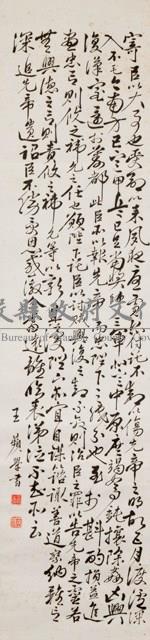 寄臣以大事也受命以來夙夜憂嘆恐付託不效以傷先帝之明故五月渡瀘深
入不毛今南方已定甲兵已足當獎帥三軍北定中原庶竭駑鈍攘除姦凶興
復漢室還於舊都此臣所以報先帝而忠陛下之職分也至於斟酌損益進
盡忠言則攸之禕允之任也願陛下託臣以討賊興復之效不效則治臣之罪以告先帝之靈若
無興德之言則責攸之禕允等之咎以彰其慢陛下亦宜自謀以諮諏善道察納雅言
深追先帝遺詔臣不勝受恩感激今當遠離臨表涕泣不知所云
王
書
縣政府文化
Bureau of